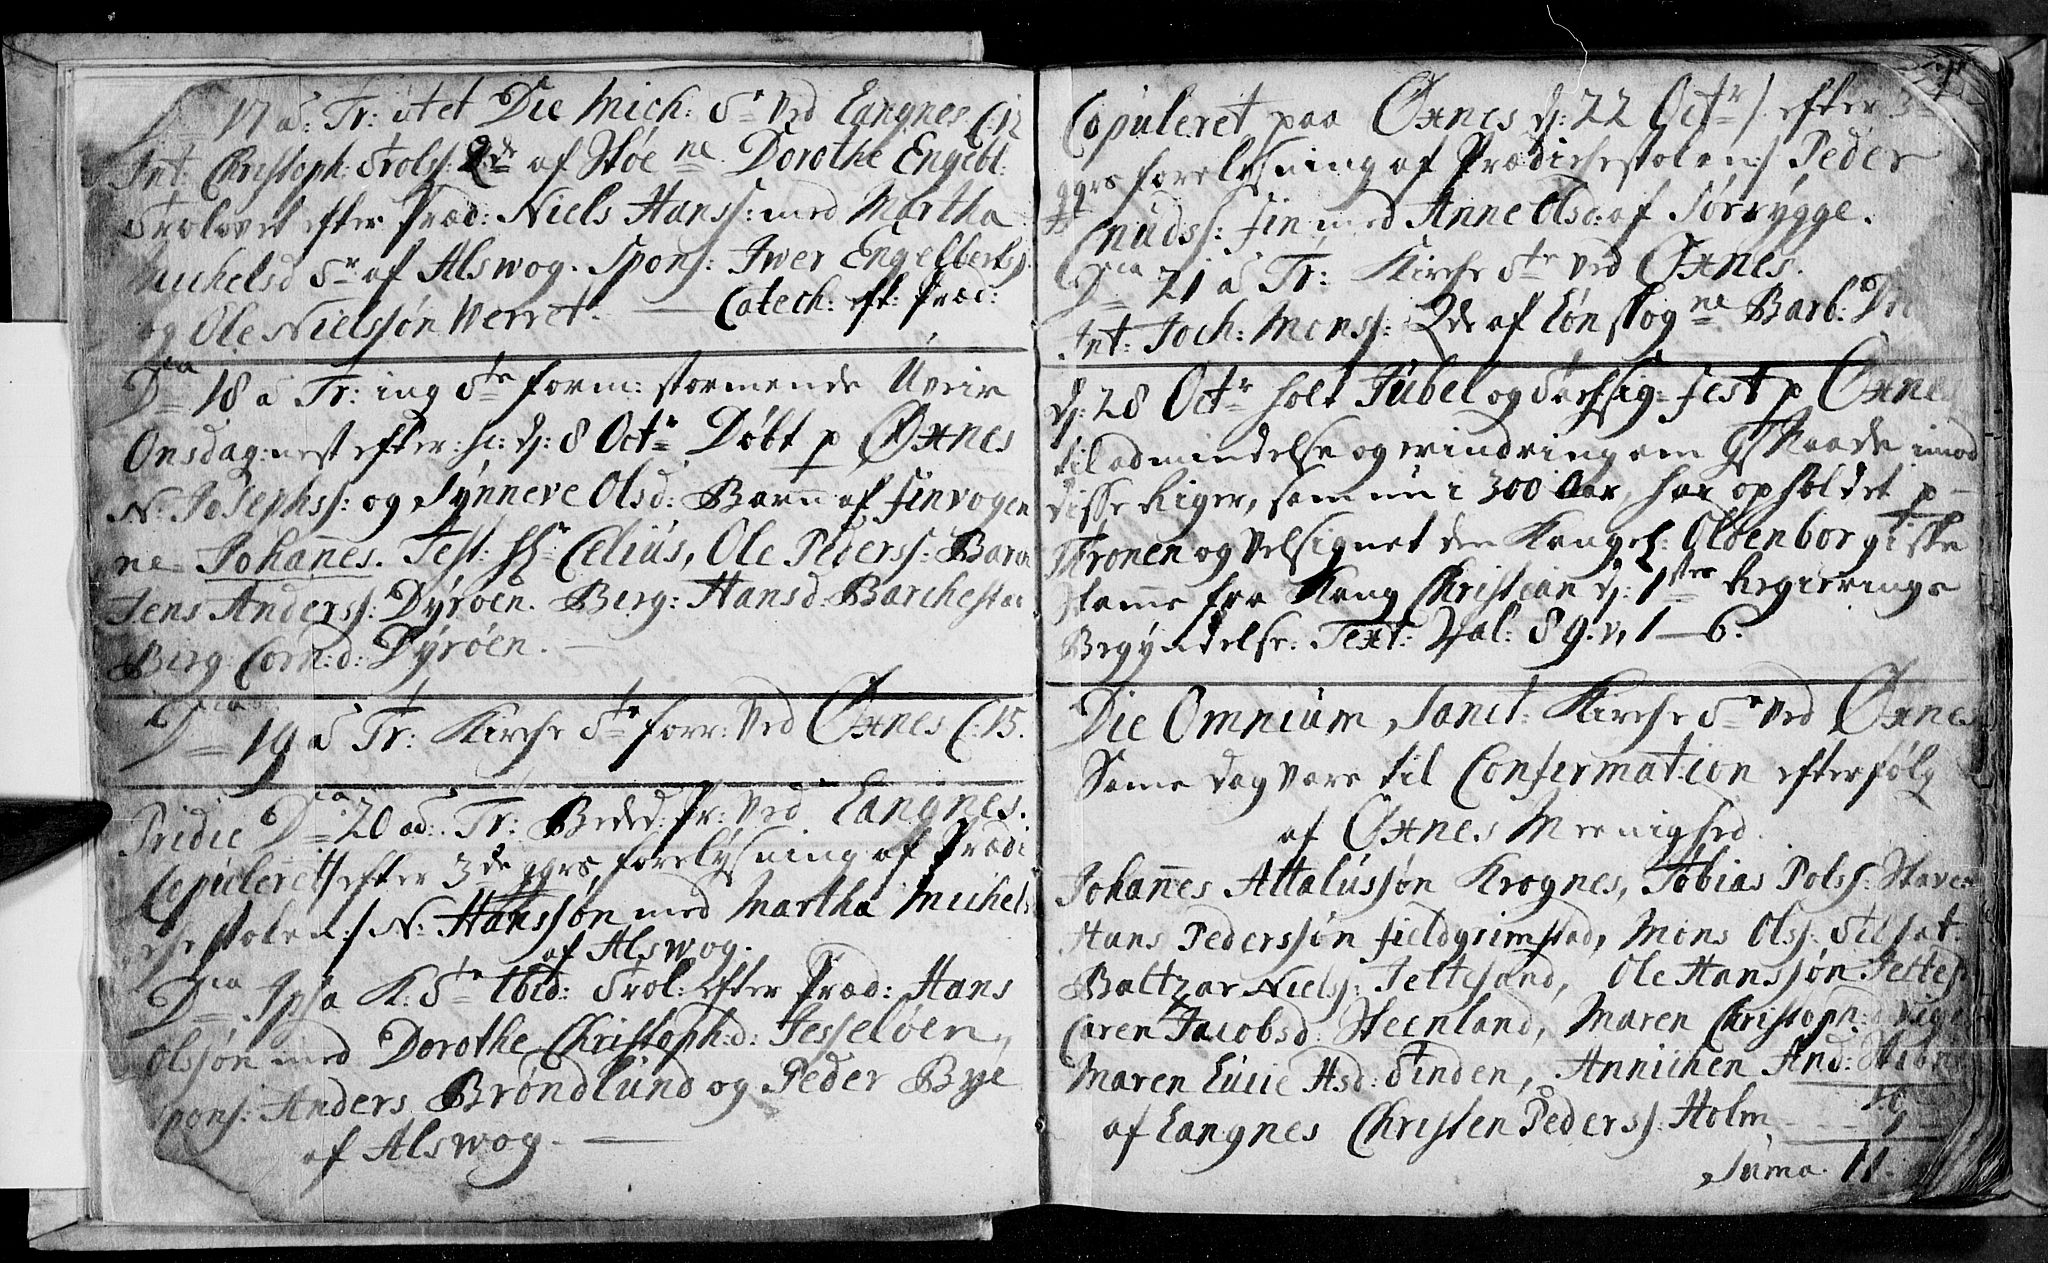 17 à: Tr: itet Die Mich: Ste Ved Langnes C:12
Int: Christoph: Trols: 2de af Støe ne Dorothe Engebl:
Trolovet efter Præd: Niels Hanss: med Martha
Michelsd Sr af Alswog. Spons: Iwer Engelbertss:
og Ole Nielssøn Werret. — Catech: eft: Præd:
Dca 18 à Tr: ing Ste form: stormende Uveir
Onsdag: nest efter: sc: d: 8 Octr Døbt p Øxnes
N: Josephss: og Synneve Olsd: Barn af Finvogen
ne Johannes. Test: Hr Celius, Ole Pederss: Barch
Jens Anderss: Dyrøen. Berg: Hansd: Barchestad
Berg: Corn:d: Dyrøen. —
Dca 19 à Tr: Kirche Ste forr: Ved Øxnes C:15.
Pridie Dca 20 ad: Tr: Beded: Pr: Ved Langnes.
Copuleret /efter 3de ggrs, forelysning af Prædi
chestolen:/ N: Hanssøn med Martha Michels
af Alswog.
Dca Ipsa K: Ste Ibid: Trol: efter Præd: Hans
Olssøn med Dorothe Christoph:d: Tesseløen,
Spons: Anders Brøndlund og Peder Bye
af Alswog. —
Copuleret paa Øxnes d: 22 Octr /: efter 3de
ggrs forelysning af Prædichestolen:/ Peder
Cnudss: Fin med Anne Olsd: af Sørrygge.
Dca 21 à Tr: Kirche Ste Ved Øxnes.
Int: Joch: Monss: 2de af Lønskog ne Barb:
d: 28 Octr holt Jubel og Tachsig: Fest p Øxnes
til admindelse og erindring om Gs Naade imod
disse Riger, som nu i 300 Aar, har opholdet p
Tronen og Velsignet den Kongel: Oldenborgiske
Stamme fra Kong Christian d: 1stes Regierings
Begyndelse: Text: Psal: 89. v, 1—6.
Die Omnium, Sanct: Kirche Ste Ved Øxnes
Same dag vare til Confirmation efterfølg
af Øxnes Meenighed.
Johannes Attalussøn Krognes, Tobias Polss: Staver
Hans Pederssøn Fieldgrimstad, Mons Olss: Tilsat
Baltzar Nielss: Tettesand, Ole Hanssøn Tettes
Caren Jacobsd: Steenland, Maren Christoph:d
Maren Lucie Hsd: Tinden, Annichen And:
10
af Langnes Christen Pederss: Holm - - - 1
Suma. 11.